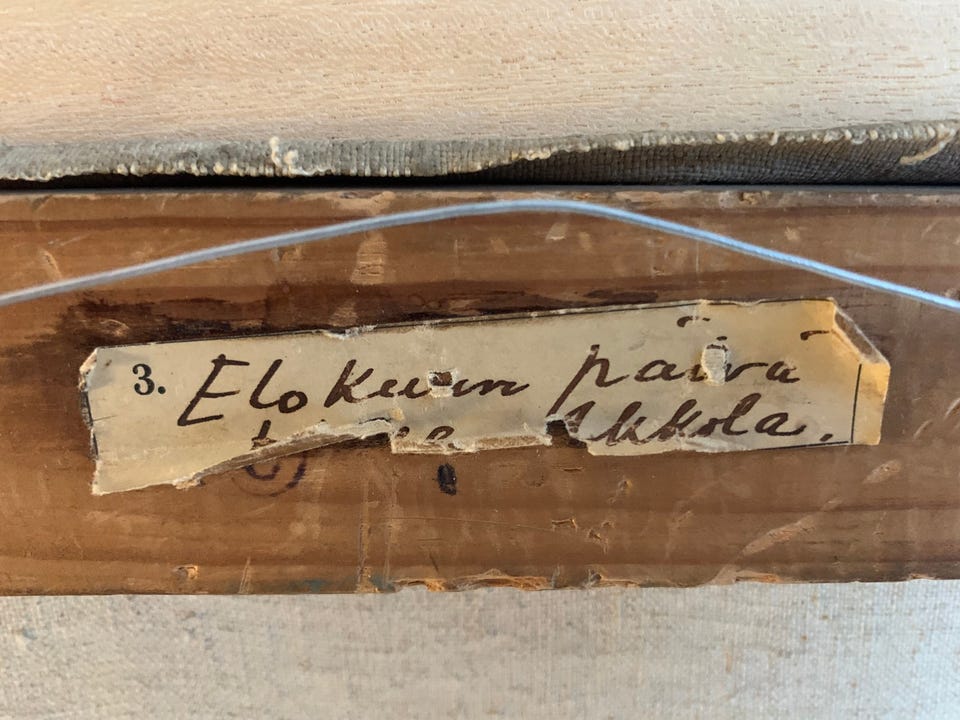 3. Elokuun päivä
Akkola.